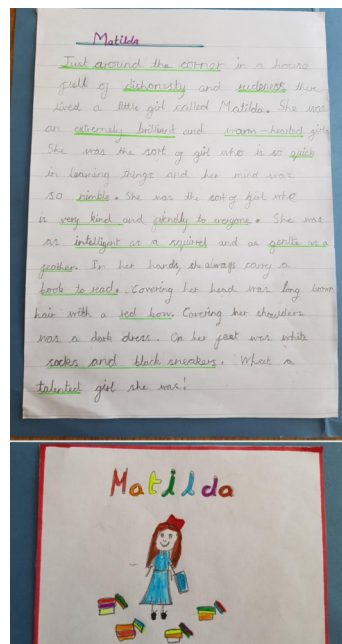 Matilda
Just around the corner in a house
full of dishonesty and rudeness there
lived a little girl called Matilda. She was
an extremely brilliant and warm-hearted girl.
She was the sort of girl who is so quick
in learning things and her mind was
so nimble. She was the sort of girl who
is very kind and friendly to everyone. She was
as intelligent as a squirrel and as gentle as a
feather. In her hands, she always carry a
book to read. Covering her head was long brown
hair with a red bow. Covering her shoulders
was a dark dress. On her feet was white
socks and black sneakers. What a
talented girl she was!
Matilda